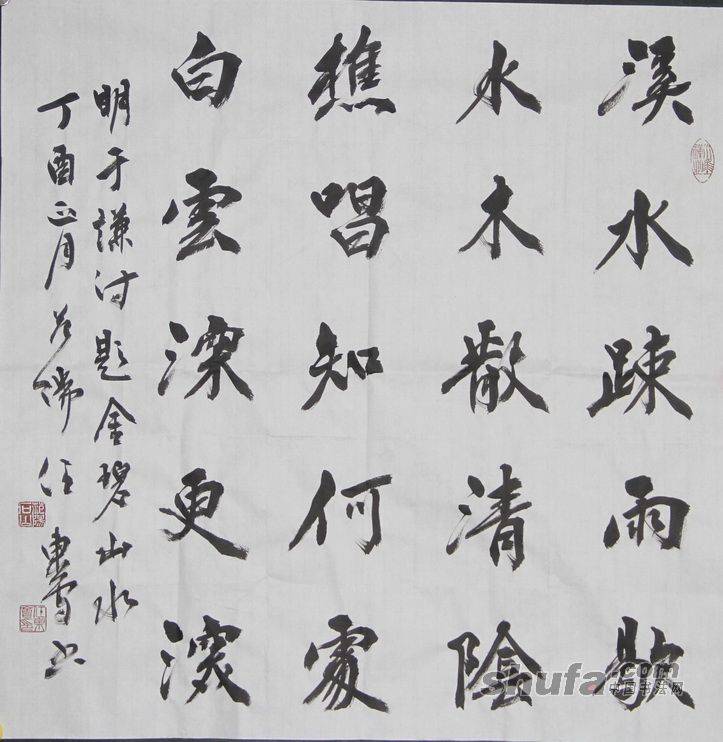 溪水疎雨歇
水木散清陰
樵唱知何處
白雲深更深
明于謙诗題金碧山水
丁酉正月 任
shufa.com
中国书法网